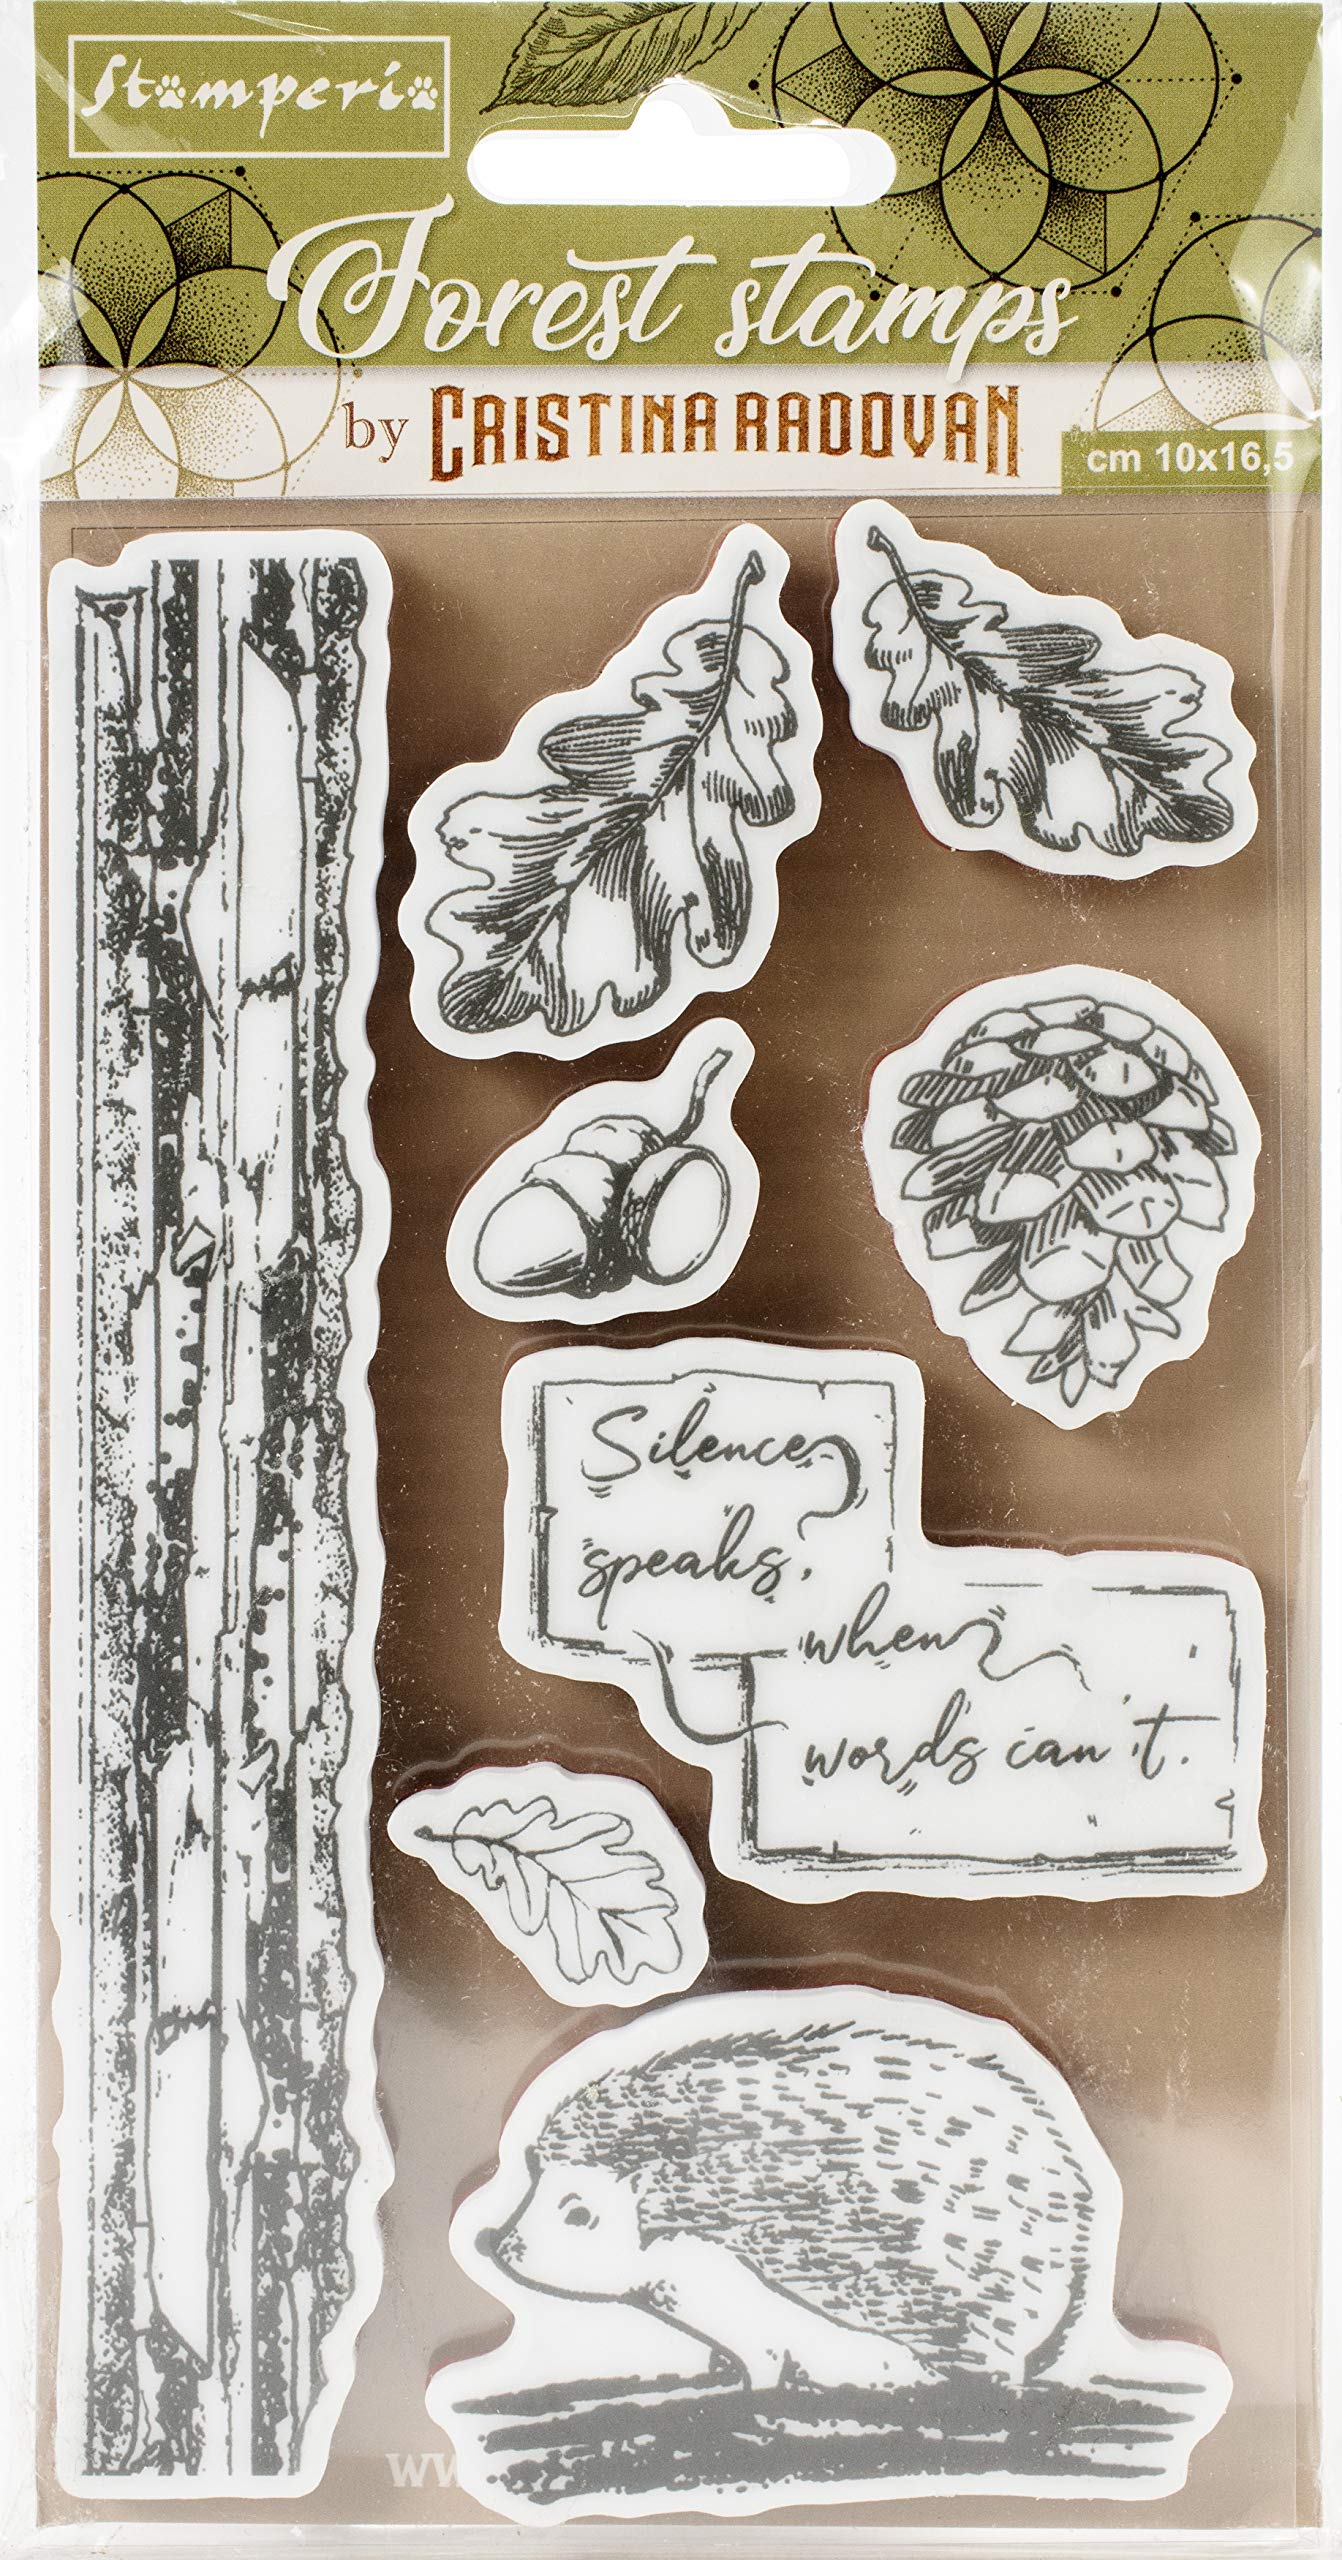 Stamperia
Forest stamps
by CRISTINA RADOVAN
cm 10x16,5
Silence
speaks,
when
words can't.